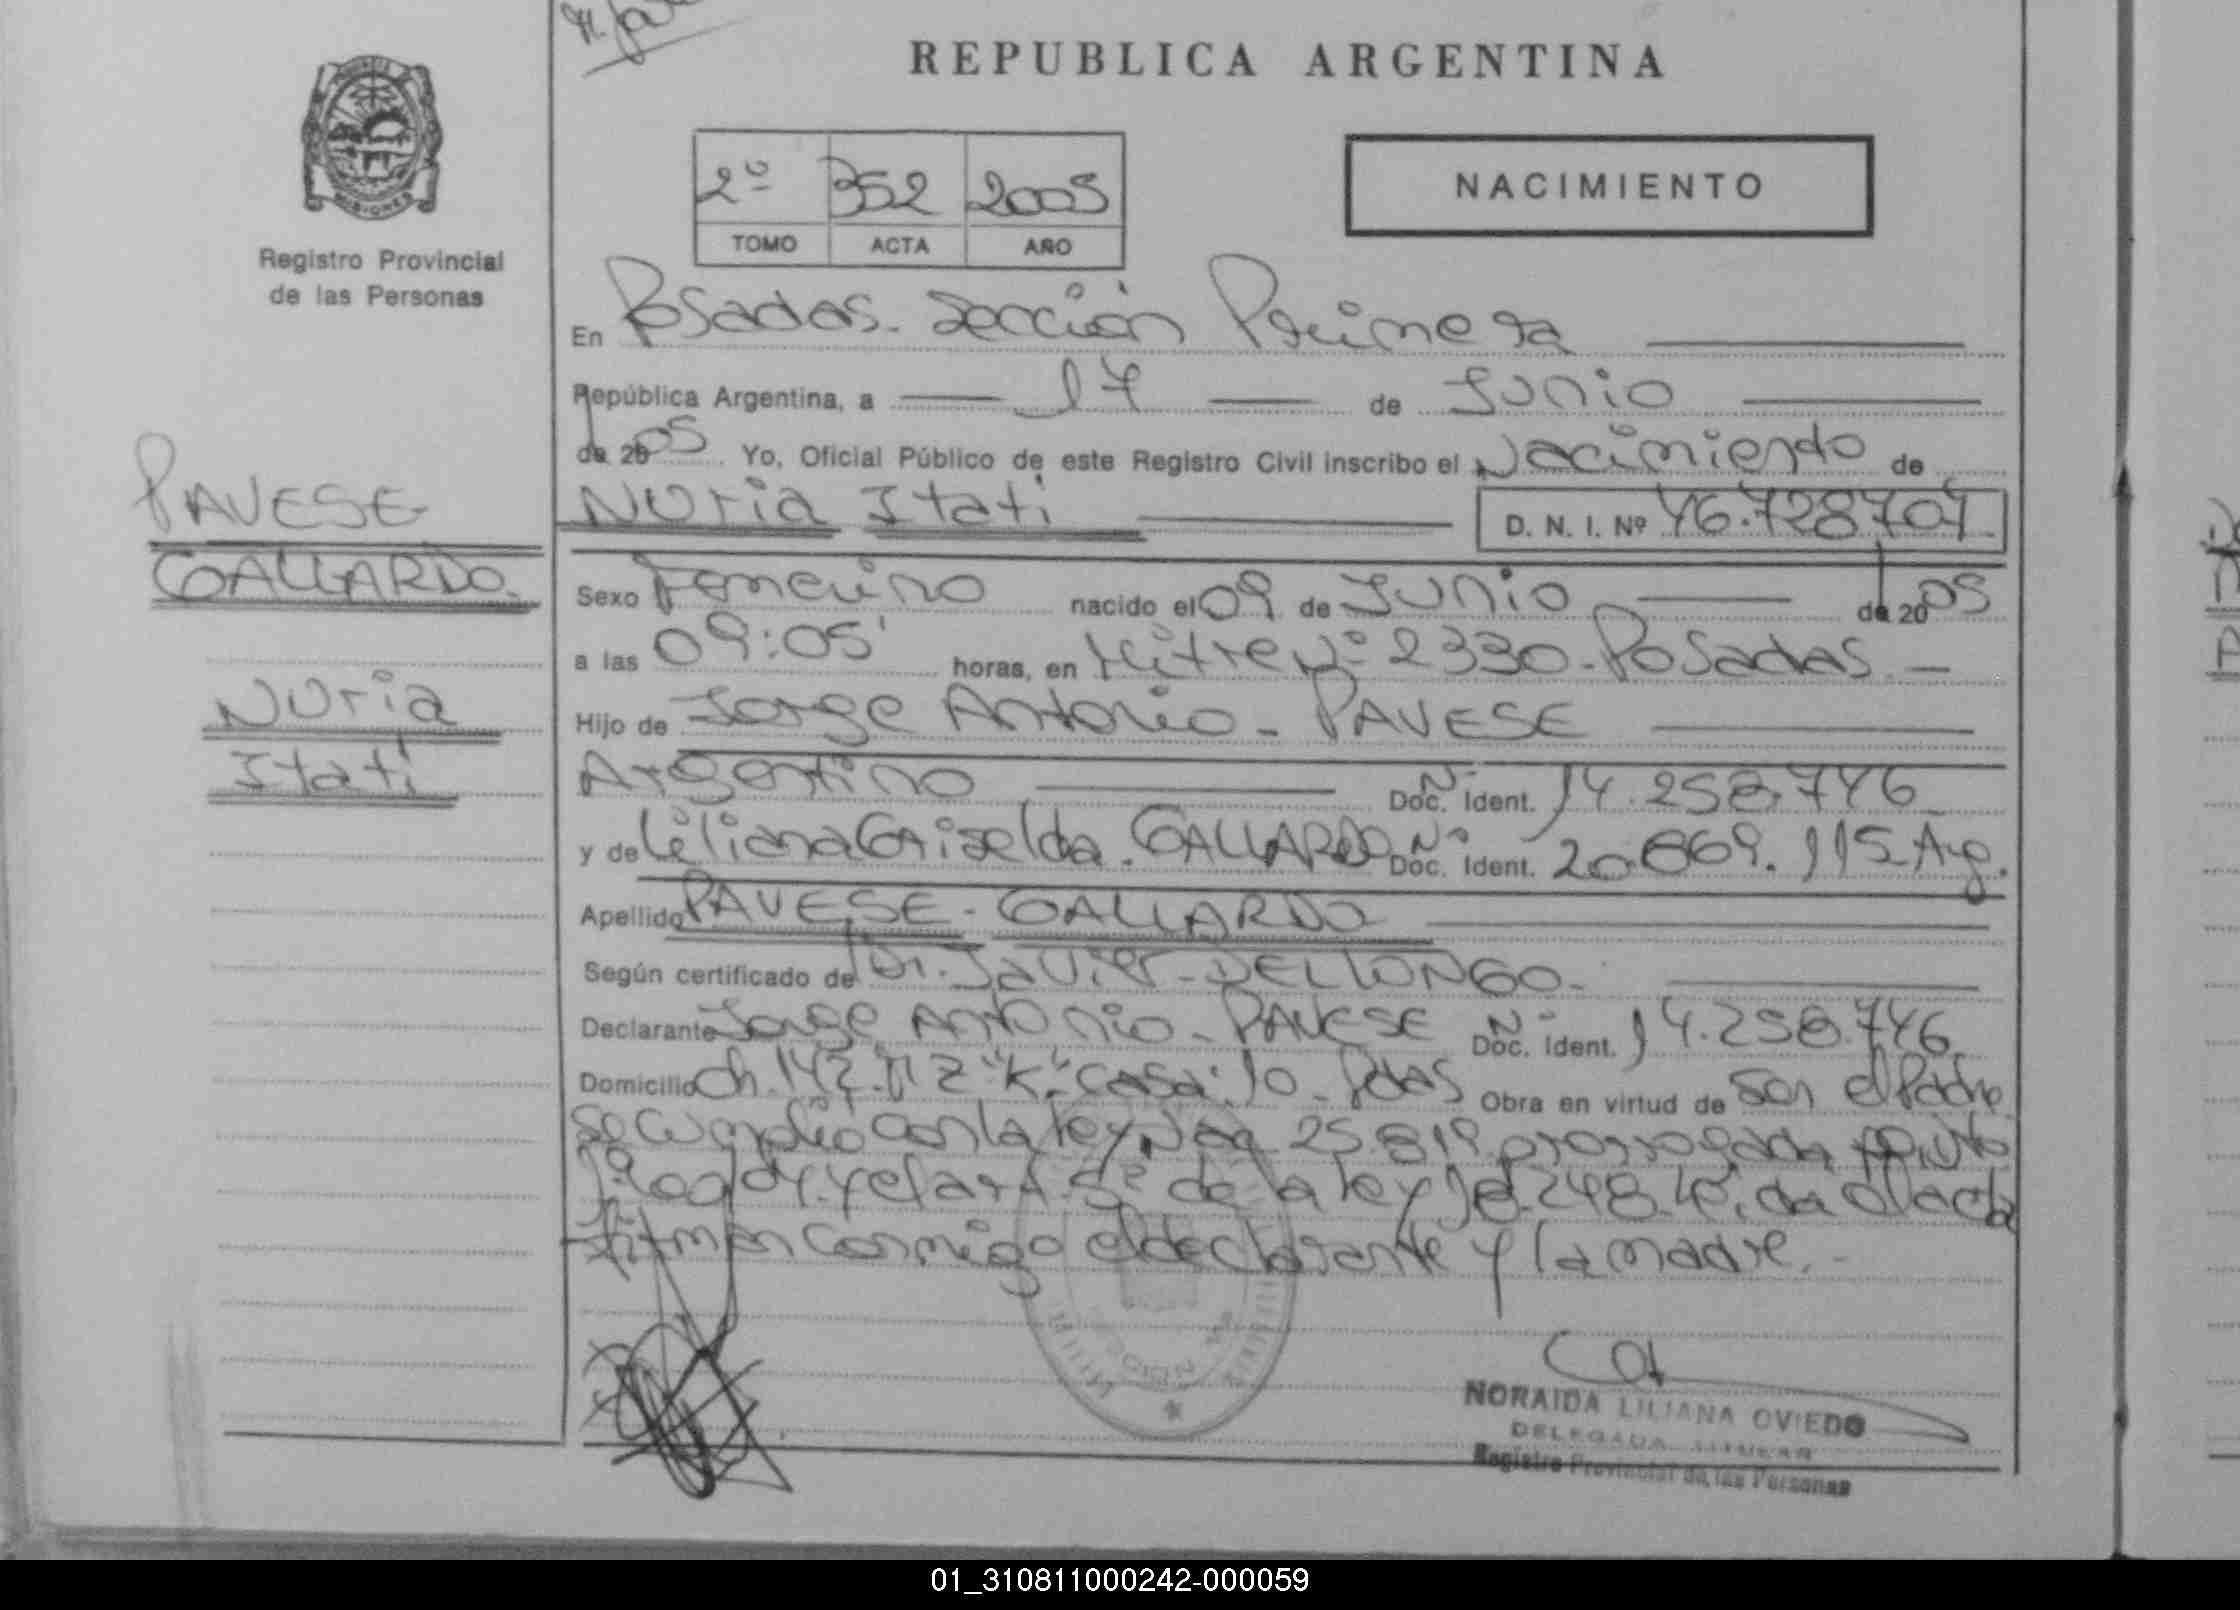 REPUBLICA ARGENTINA
MISIONES
Registro Provincial
de las Personas
2º 352 2005
TOMO ACTA AÑO
NACIMIENTO
En Posadas. Sección Primera
República Argentina, a 17 de Junio
de 2005 Yo, Oficial Público de este Registro Civil inscribo el Nacimiento de
Nuria Itatí D. N. I. Nº 46.728707
PAVESE
GALLARDO.
Nuria
Itatí
Sexo Femenino nacido el 09 de Junio de 2005
a las 09:05' horas, en Mitre Nº 2330. Posadas.
Hijo de Jorge Antonio - PAVESE
Argentino Doc. Nº Ident. 14.258.746
y de Liliana Griselda. GALLARDO Doc. Nº Ident. 20.669.115 Arg.
Apellido PAVESE - GALLARDO
Según certificado de Dr. Javier - DELLONGO.
Declarante Jorge Antonio - PAVESE Doc. Nº Ident. 14.258.746
Domicilio Ch. 142. MZ "K" casa: 10 - Pdas Obra en virtud de Ser el Padre
con la ley Nac 25.819 prorrogada
de la ley 18.248. el acta
firman conmigo el declarante y la madre.-
NORAIDA LILIANA OVIEDO
DELEGADA TITULAR
Registro Provincial de las Personas
01_310811000242-000059